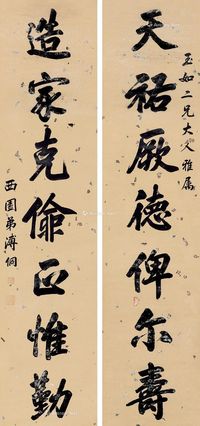 玉如二兄大人雅属
天祐厥德俾尔寿
造家克俭且惟勤
西園弟溥侗